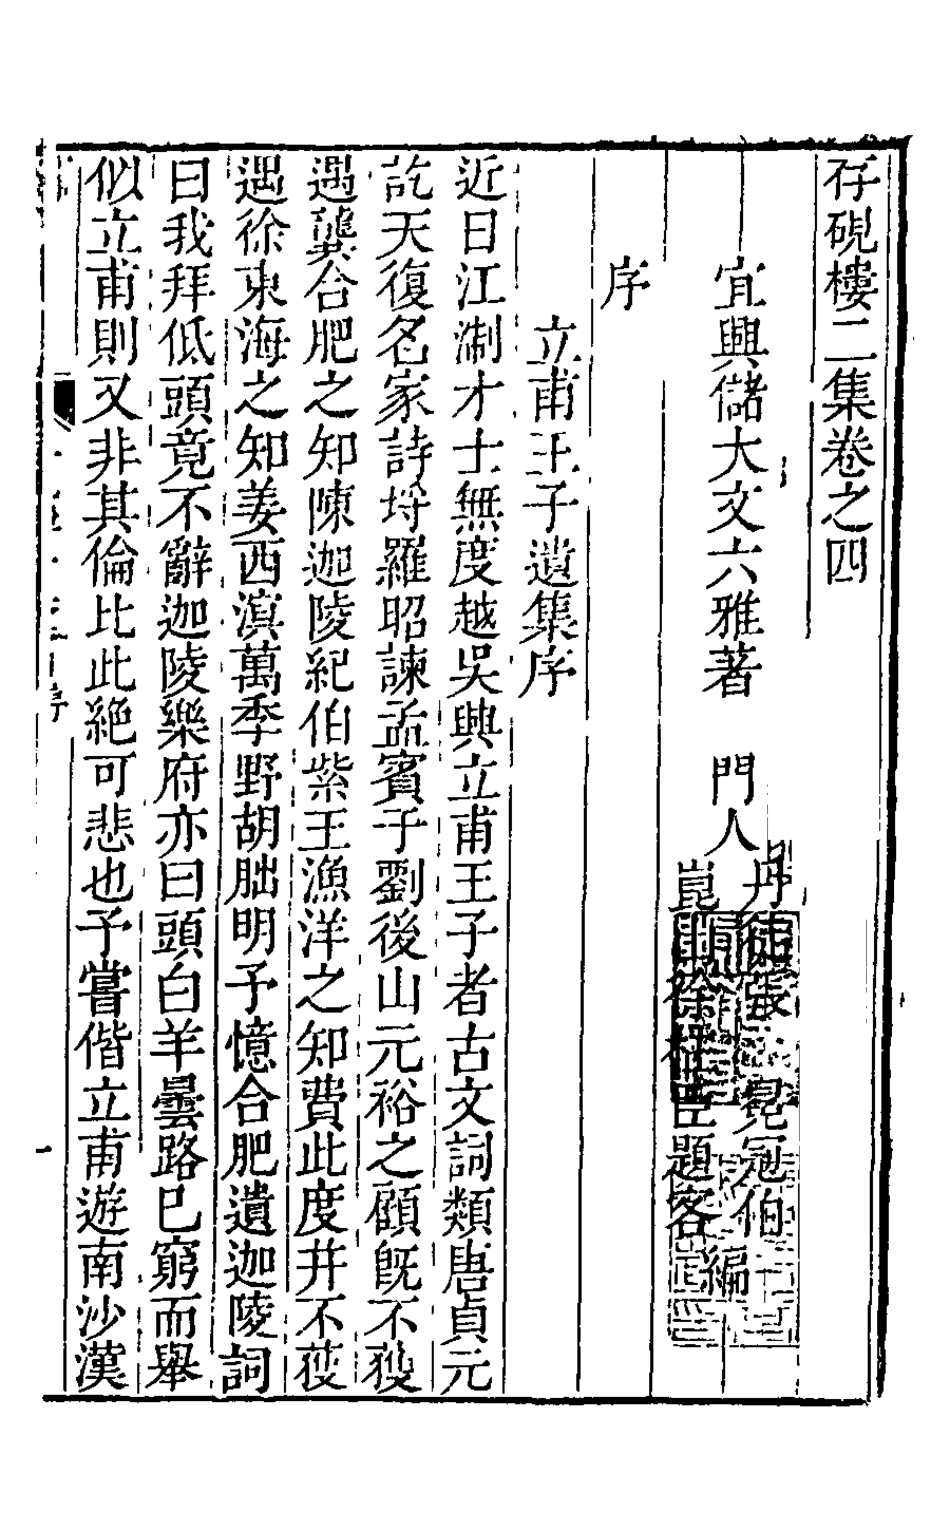 存硯樓二集卷之四
宜興儲大文六雅著　門人
丹徒張冕冠伯
崑山徐桓臣題客
編
序
立甫王子遺集序
近日江淛才士無度越吳興立甫王子者古文詞類唐貞元
訖天復名家詩埒羅昭諫孟賓于劉後山元裕之顧旣不𫉬
遇龔合肥之知陳迦陵紀伯紫王漁洋之知費此度并不𫉬
遇徐東海之知姜西溟萬季野胡朏明予憶合肥遺迦陵詞
曰我拜低頭竟不辭迦陵樂府亦曰頭白羊曇路已窮而舉
似立甫則又非其倫比此絕可悲也予嘗偕立甫遊南沙漢